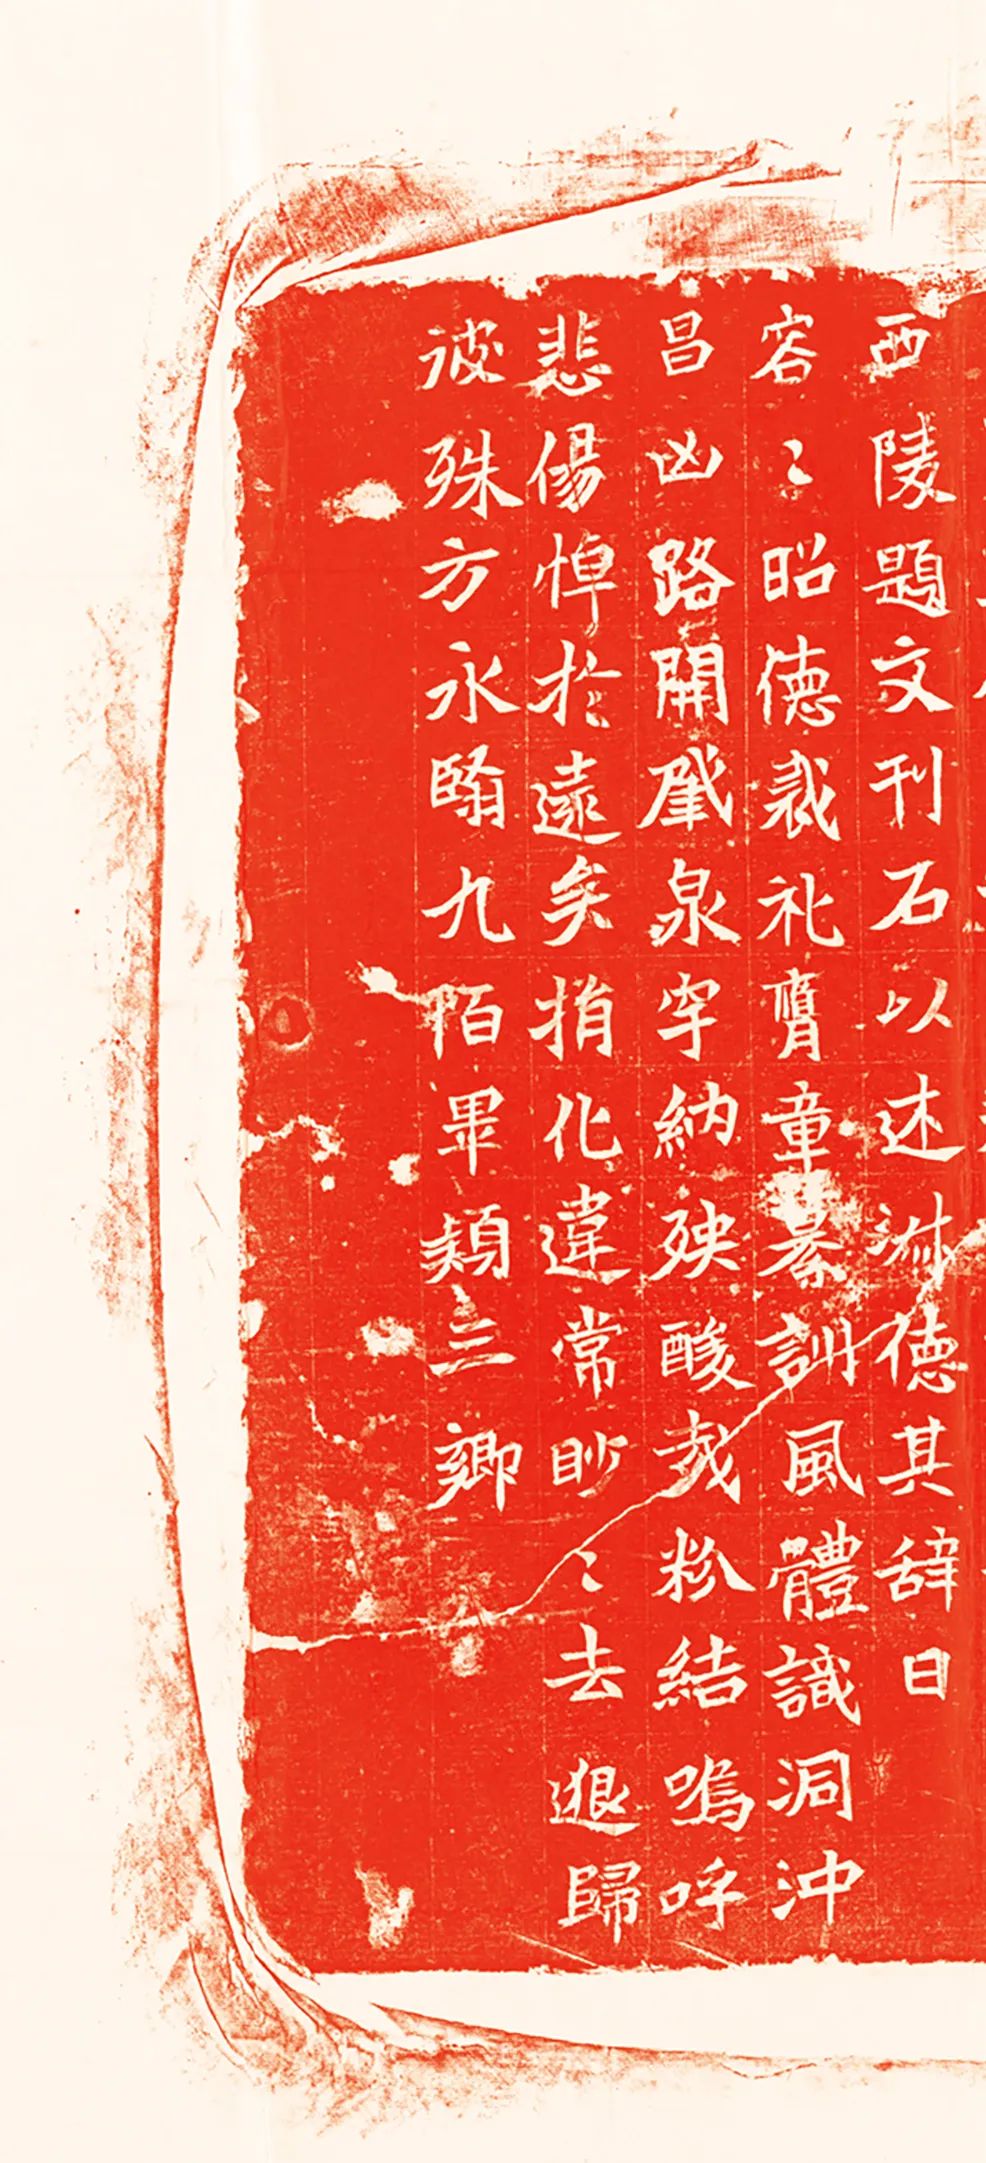 西陵題文刊石以述淑德其辞曰
容〻昭德裁礼膺童綦訓風體識洞沖
昌凶路開肈泉穻納殃酸㦲粉結嗚呼
悲傷悼於遠矣捐化違常眇〻去退歸
彼殊方永翳九陌畢類三卿